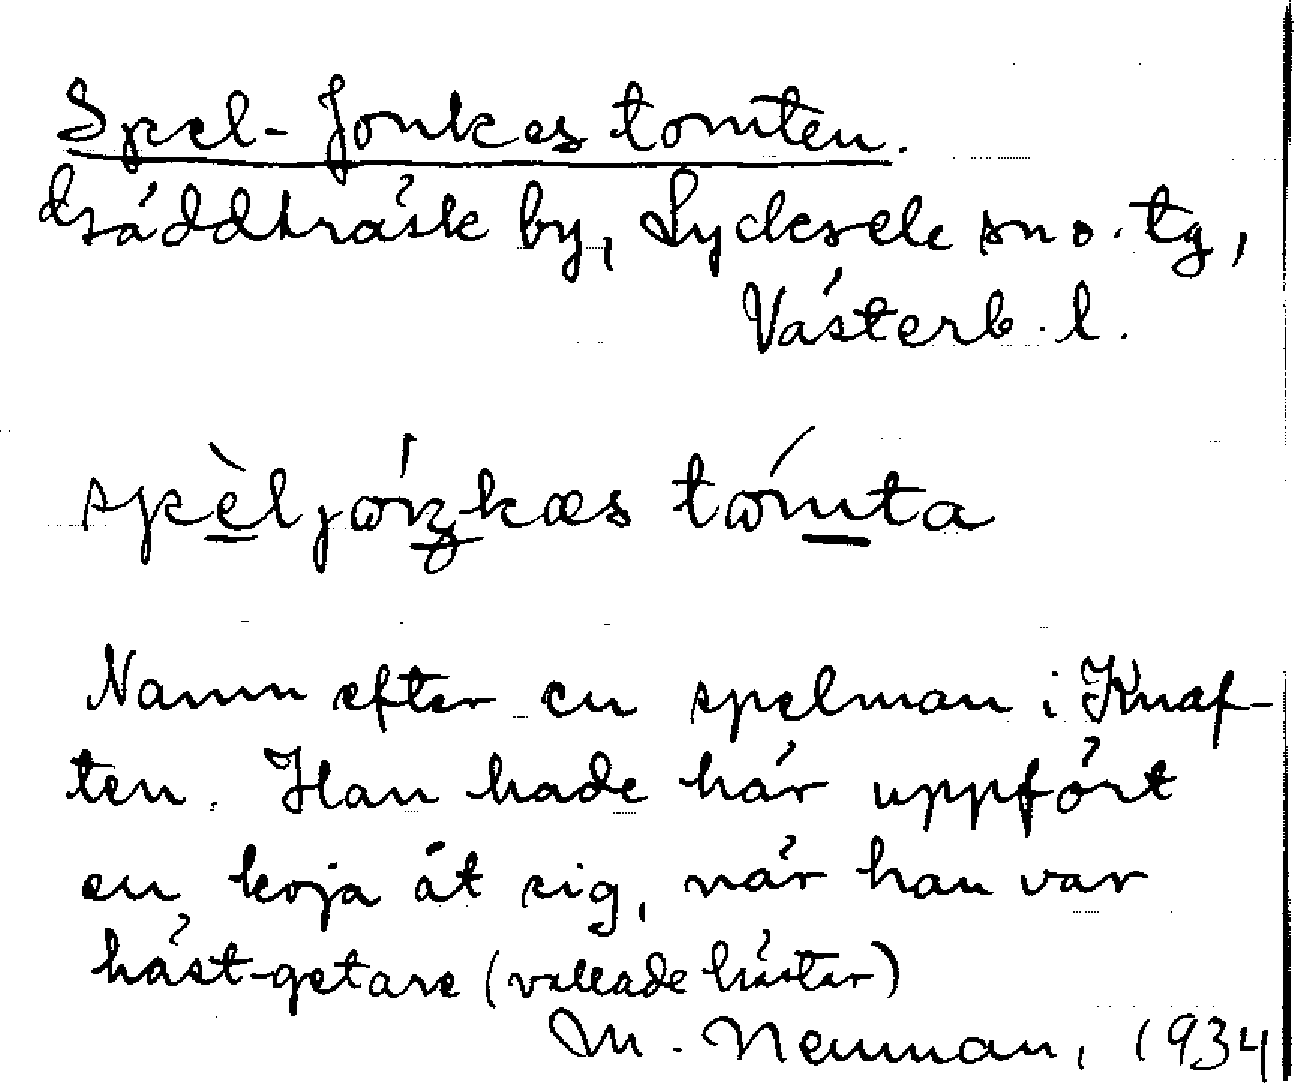 Spel-Jonkes tomten.
Gäddträsk by, Lycksele sn o. tg,
Västerb. l.
tómta
Namn efter en spelman i Knaf-
ten. Han hade här uppfört
en koja åt sig, när han var
häst-getare (vallade hästar)
M. Neuman, 1934